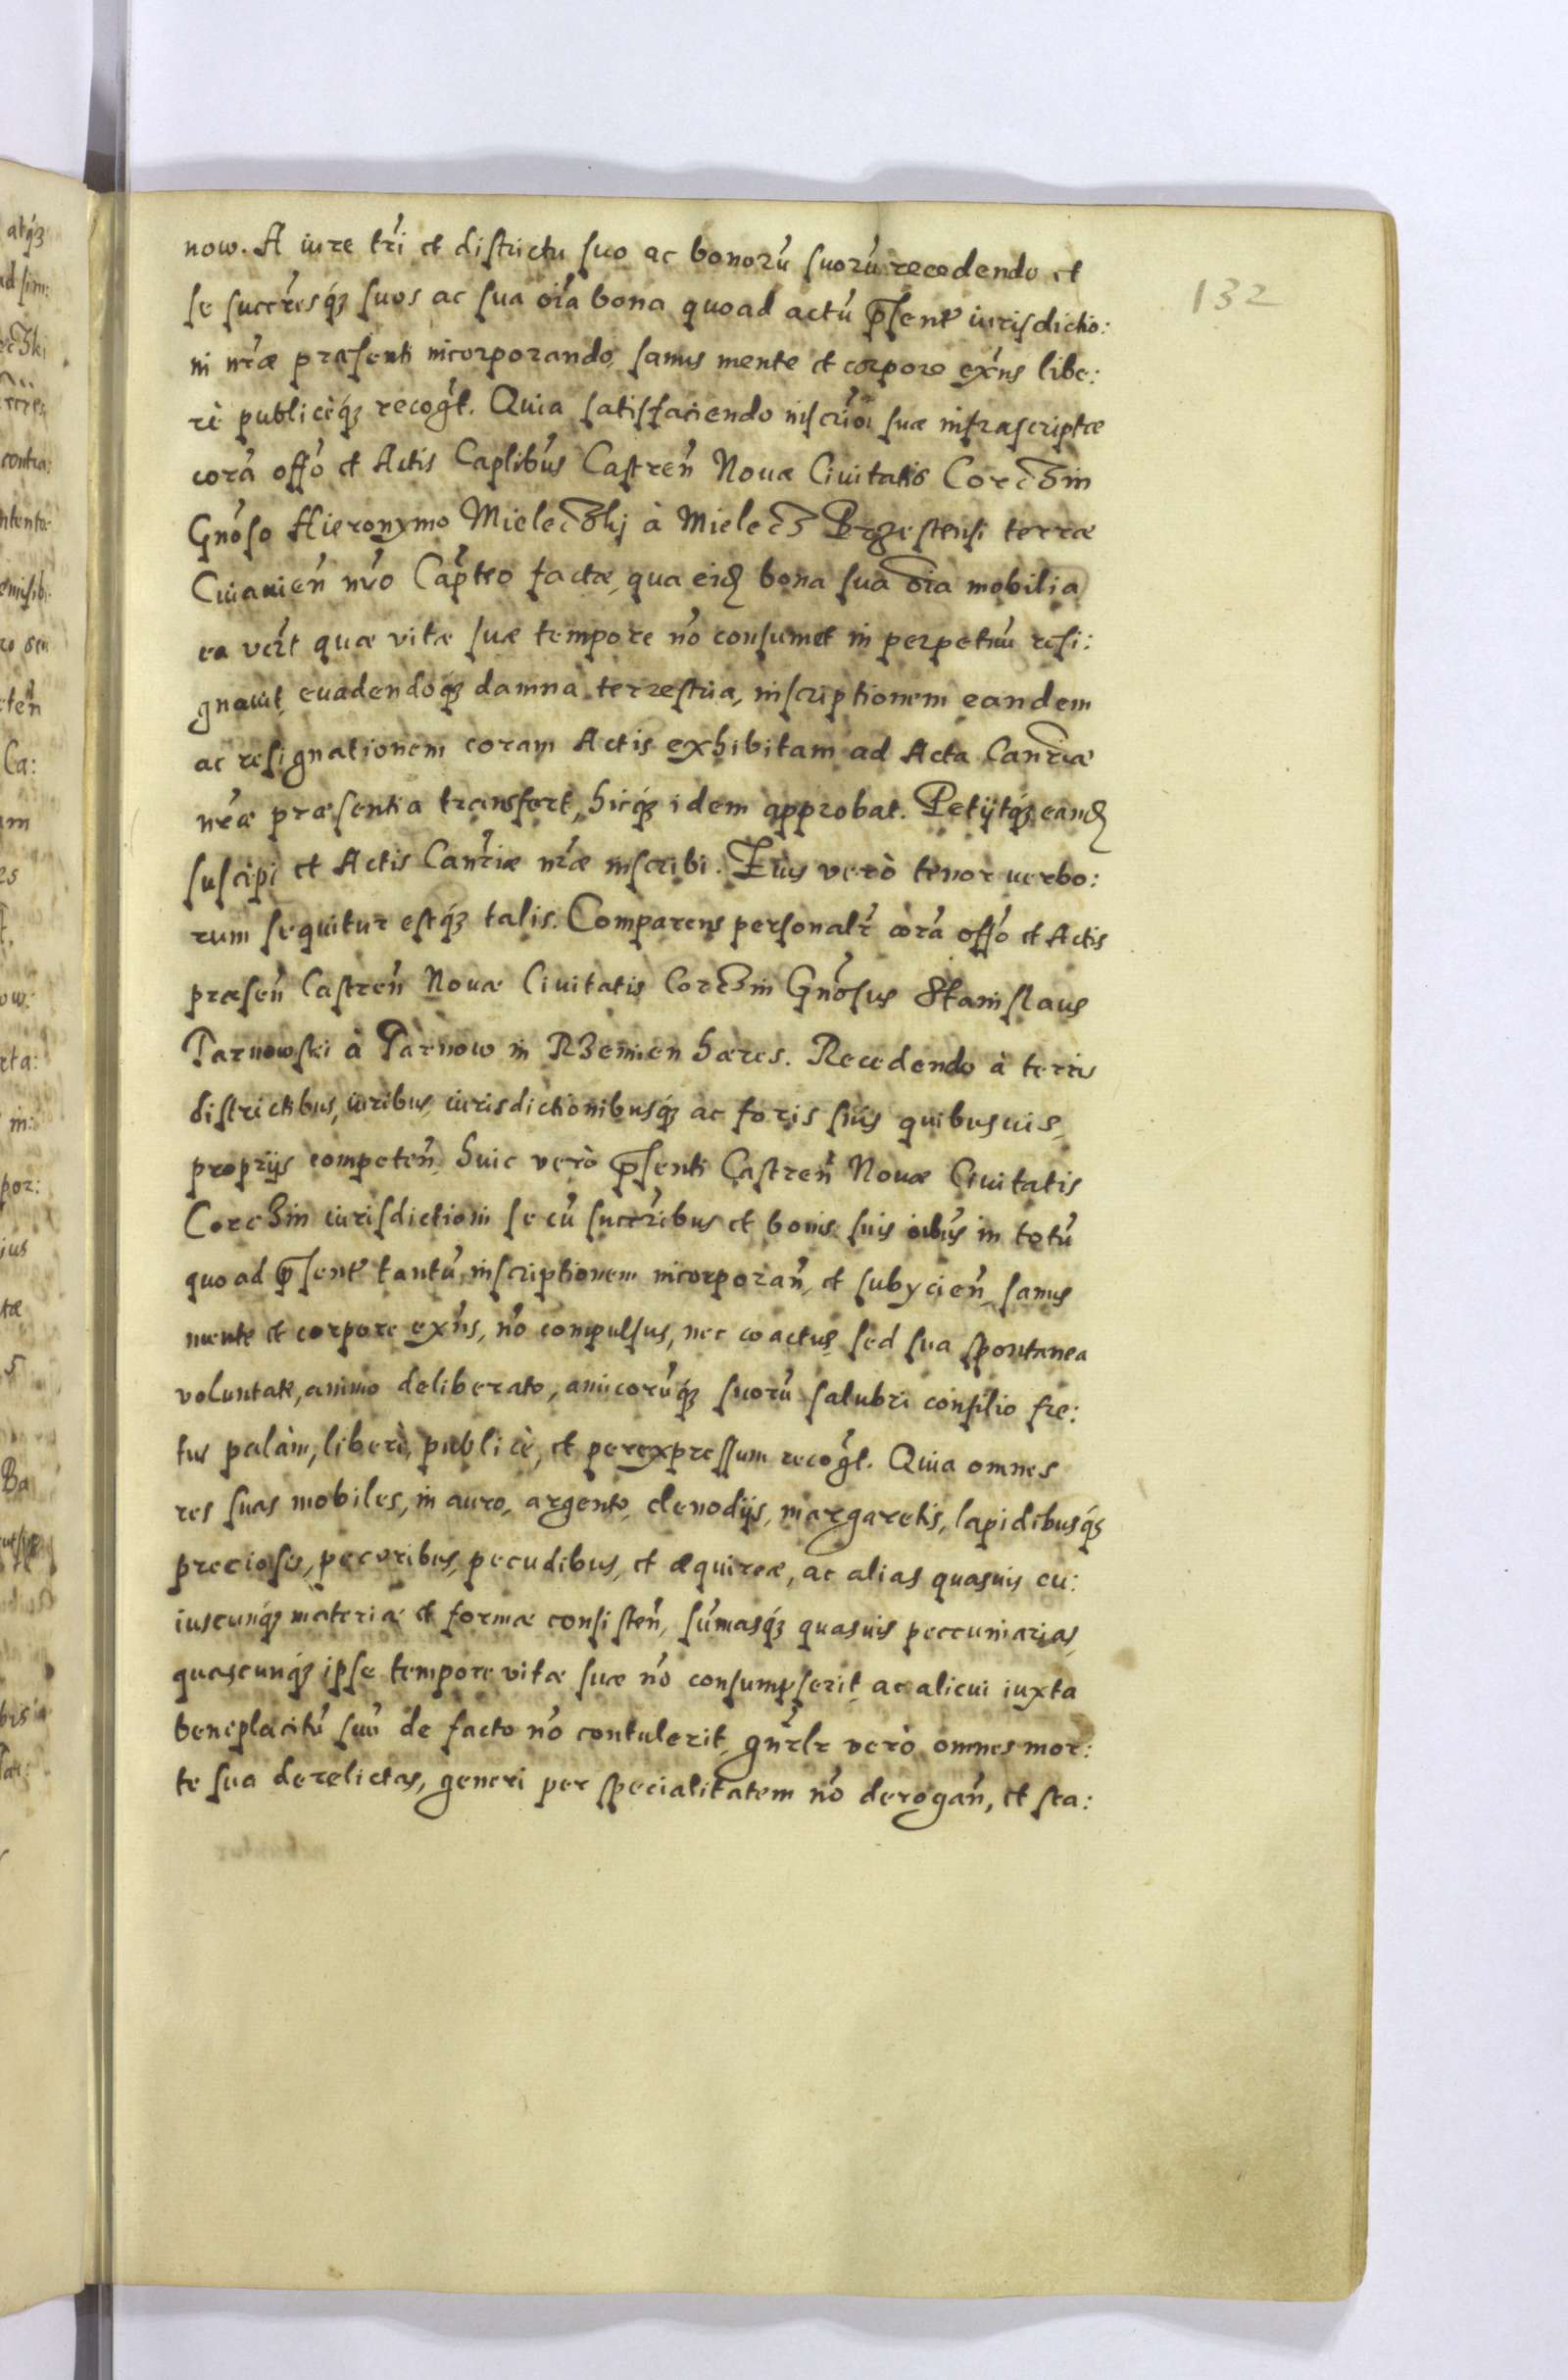 132
now. A iure tr̃i et districtu suo ac bonorũ suorũ recedendo et
se succr̃esq́ȝ suos ac sua oĩa bona quoad actũ p̃sent̃ iurisdictio:
ni nr̃æ præsenti incorporando, sanus mente et corpore exñs libe:
rè publicèq́ȝ recog̃t. Quia satisfaciendo inscr̃ioi suæ infrascriptæ
corã offõ et Actis Capłlibus Castreñ Nouæ Ciuitatis Corczin
Gnõso Hieronymo Mieleczkj à Mielecz Brzestensi terræ
Cuiauieñ nr̃o Cap̃teo factæ, qua eidȝ bona sua oĩa mobilia
ea vcz̃t quæ vitæ suæ tempore nõ consumet in perpetuũ resi:
gnauit, euadendoq́ȝ damna terrestria, inscriptionem eandem
ac resignationem coram Actis exhibitam ad Acta Canr̃iæ
nr̃æ præsentia transfert, hicq́ȝ idem approbat. Petijtq́ȝ eandȝ
suscipi et Actis Canr̃iæ nr̃æ inscribi. Eius verò tenor uerbo:
rum sequitur estq́ȝ talis. Comparens personalr̃ corã offõ et Actis
præseñ Castreñ Nouæ Ciuitatis Corczin Gnõsus Stanislaus
Tarnowski à Tarnow in Rzemien hæres. Recedendo à terris
districtibus, iuribus, iurisdictionibusq́ȝ ac foris suis quibusuis,
proprijs competeñ, huic verò p̃senti Castreñ Nouæ Ciuitatis
Corczin iurisdictioni se cũ succr̃ibus et bonis suis oĩbus in totũ
quoad p̃sent̃ tantũ inscriptionem incorporañ, et subycieñ, sanus
mente et corpore exñs, nõ compulsus, nec coactus, sed sua spontanea
voluntate, animo deliberato, amicorũq́ȝ suorũ salubri consilio fre:
tus palàm, liberè, publicè, et per expressum recog̃t. Quia omnes
res suas mobiles, in auro, argento, clenodijs, margaretis, lapidibusq́ȝ
preciosis, pecoribus, pecudibus, et æquirea, ac alias quasuis cu:
iuscunq́ȝ materiæ et formæ consisteñ, sũmasq́ȝ quasuis peccuniarias,
quascunq́ȝ ipse tempore vitæ suæ nõ consumpserit, ac alicui iuxta
beneplacitũ suũ de facto nõ contulerit, gnr̃lr verò omnes mor:
te sua derelictas, generi per specialitatem nõ derogañ, et sta: